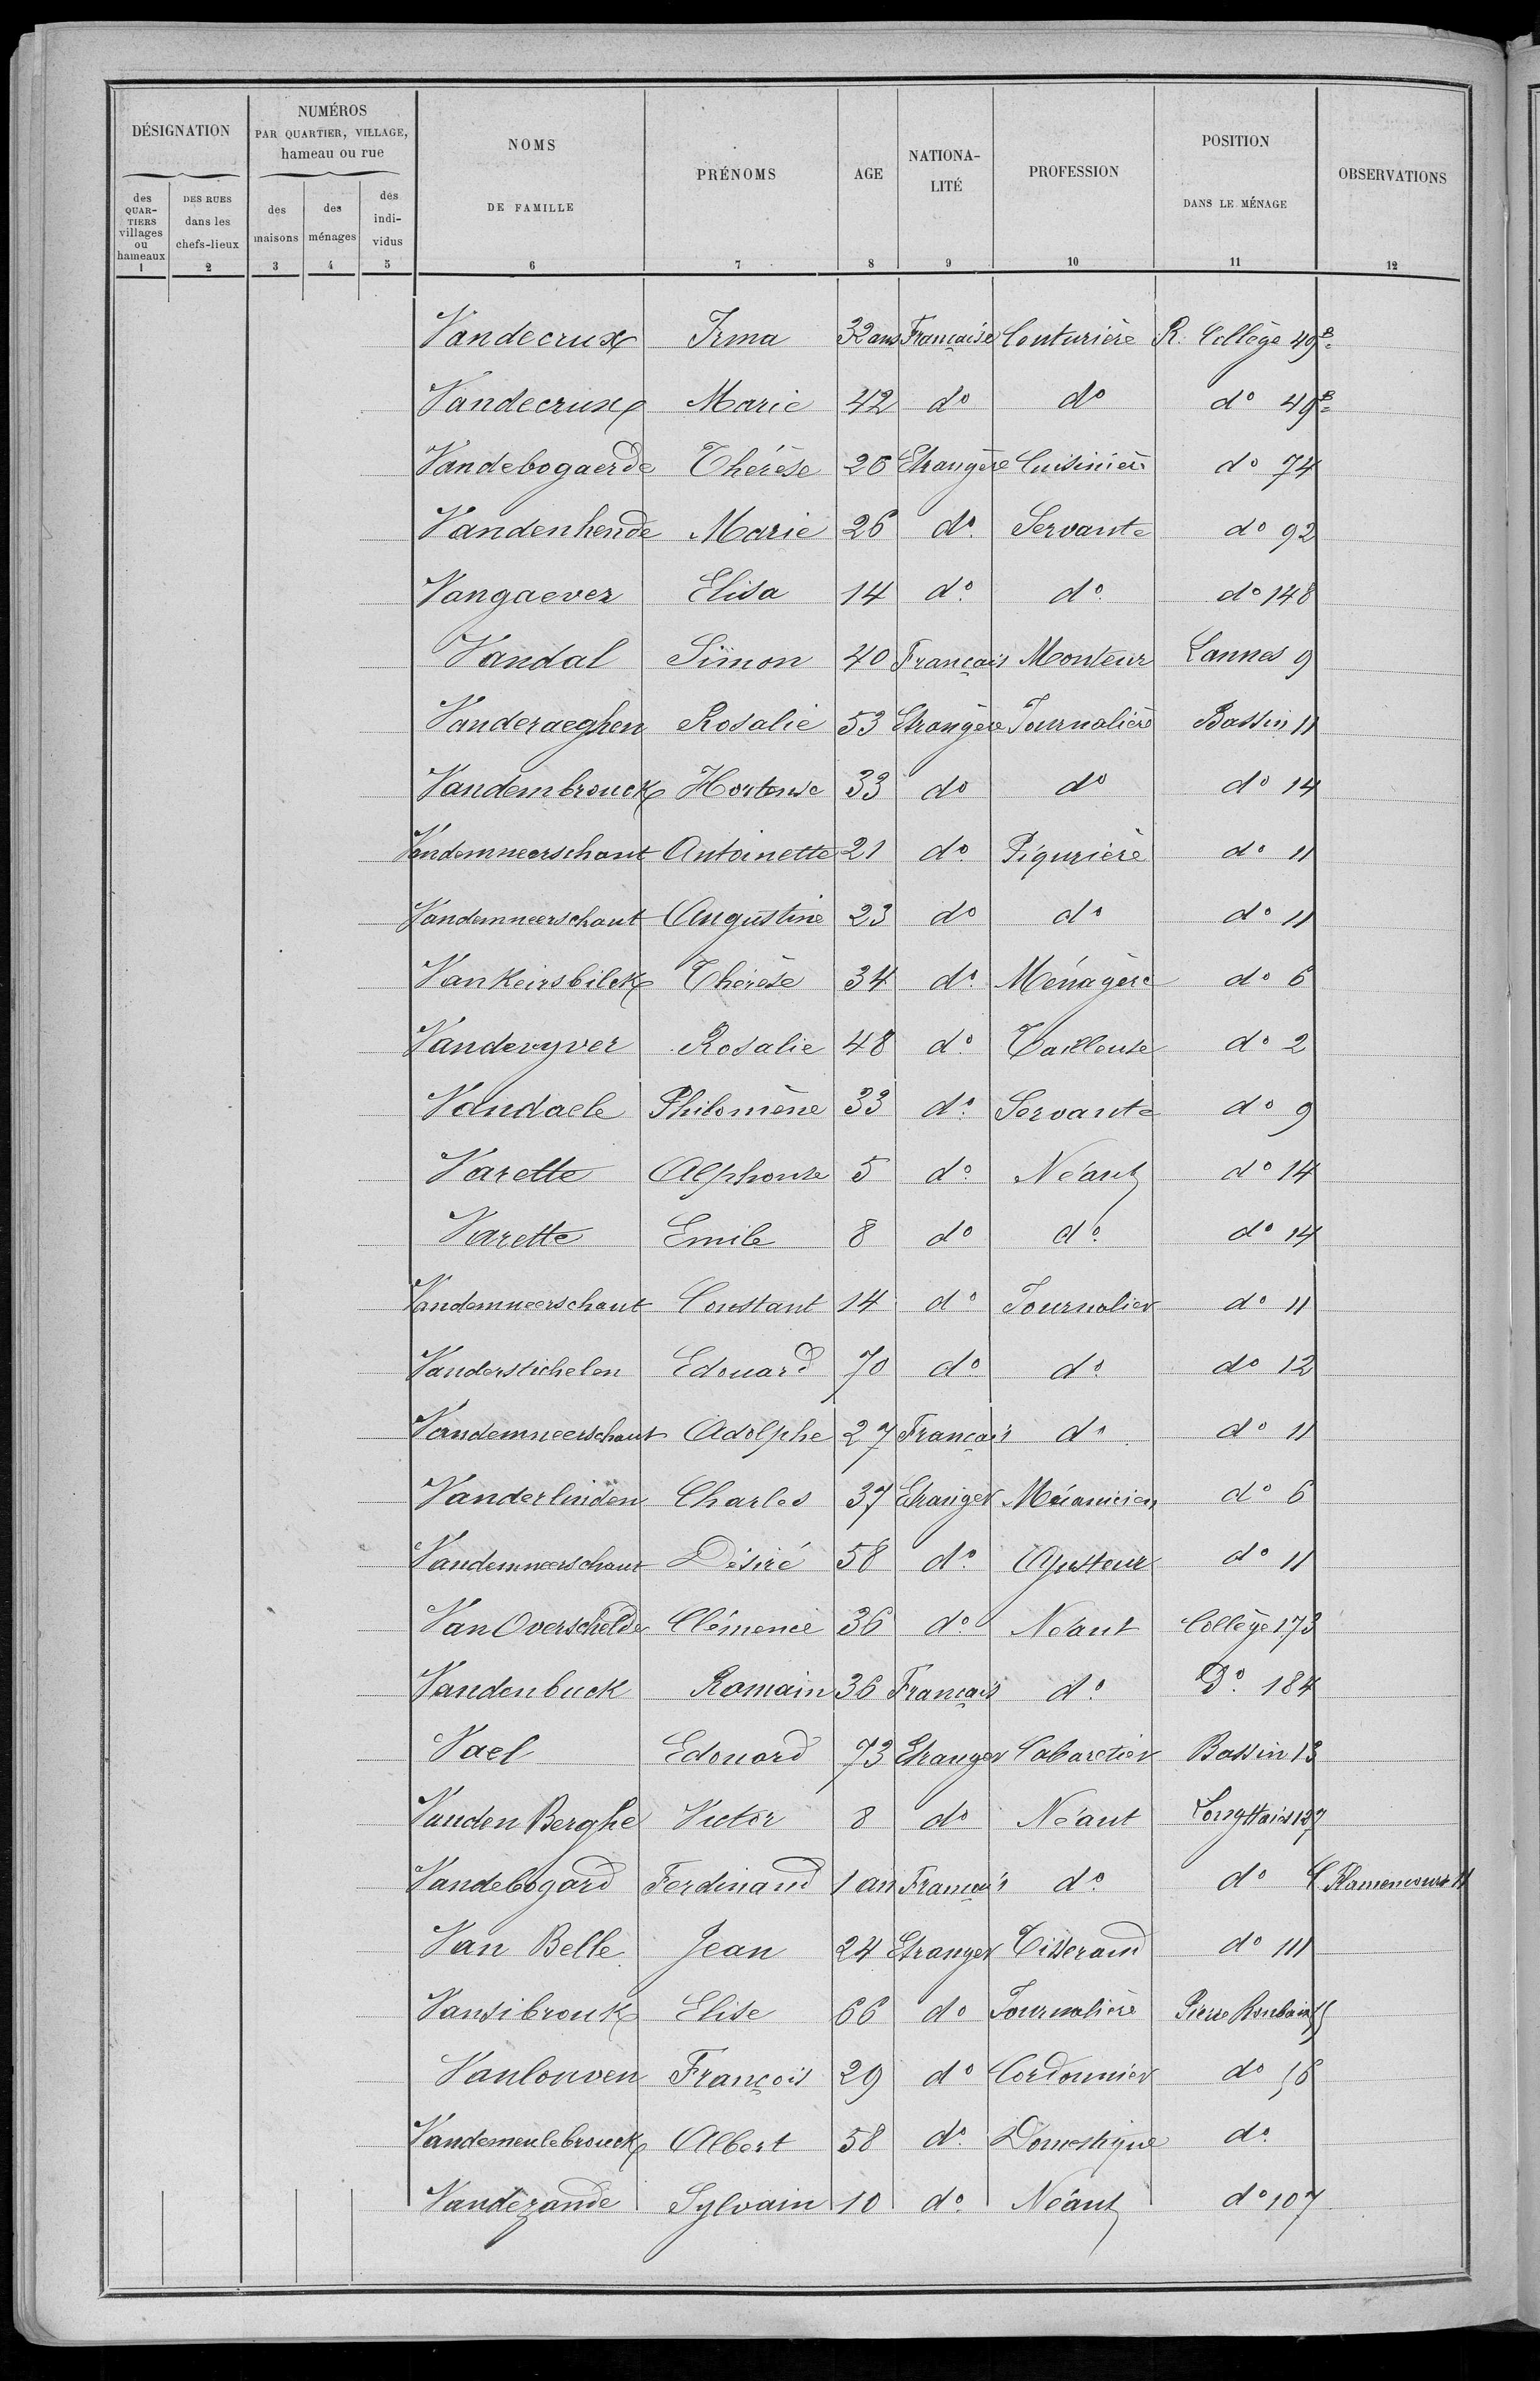 DÉSIGNATION
NUMÉROS
PAR QUARTIER, VILLAGE,
hameau ou rue
NOMS
DE FAMILLE
PRÉNOMS
AGE
NATIONA-
LITÉ
PROFESSION
POSITION
DANS LE MÉNAGE
OBSERVATIONS
des
QUAR-
TIERS
villages
ou
hameaux
DES RUES
dans les
chefs-lieux
des
maisons
des
ménages
des
indi-
vidus
1 2 3 4 5 6 7 8 9 10 11 12
Vandecrux Irma 32 ans Française Couturière R. Collège 49B
Vandecrux Marie 42 do do do 49B
Vandebogaerde Thérèse 26 Etrangère Cuisinière do 74
Vandenhende Marie 26 do Servante do 92
Vangaever Elisa 14 do do do 148
Vandal Simon 40 Français Monteur Lannes 9
Vanderaeghen Rosalie 53 Etrangère Journalière Bassin 11
Vandembrouck Hortense 33 do do do 14
Vandemneerschaut Antoinette 21 do Piqurière do 11
Vandemneerschaut Augustine 23 do do do 11
Vankeirsbilck Thérèse 34 do Ménagère do 6
Vandevyver Rosalie 48 do Tailleuse do 2
Vandaele Philomène 33 do Servante do 9
Varette Alphonse 5 do Néant do 14
Varette Emile 8 do do do 14
Vandemneerschaut Constant 14 do Journalier do 11
Vanderstichelen Edouard 70 do do do 12
Vandemneerschaut Adolphe 27 Français do do 11
Vanderlinden Charles 37 Etranger Mécanicien do 6
Vandemneerschaut Désiré 58 do Ajusteur do 11
Van Overschelde Clémence 36 do Néant Collège 173
Vandenbuck Romain 36 Français do Do 184
Vael Edouard 73 Etranger Cabaretier Bassin 13
Vanden Berghe Victor 8 do Néant Longhaies 127
Vandebogard Ferdinand 1 an Français do do C. Flamencourt 11
Van Belle Jean 24 Etranger Tisserand do 111
Vansibrouk Elise 66 do Journalière Pierre Roubaix 55
Vanlouven François 29 do Cordonnier do 56
Vandemeulebrouck Albert 58 do Domestique do
Vandezande Sylvain 10 do Néant do 107